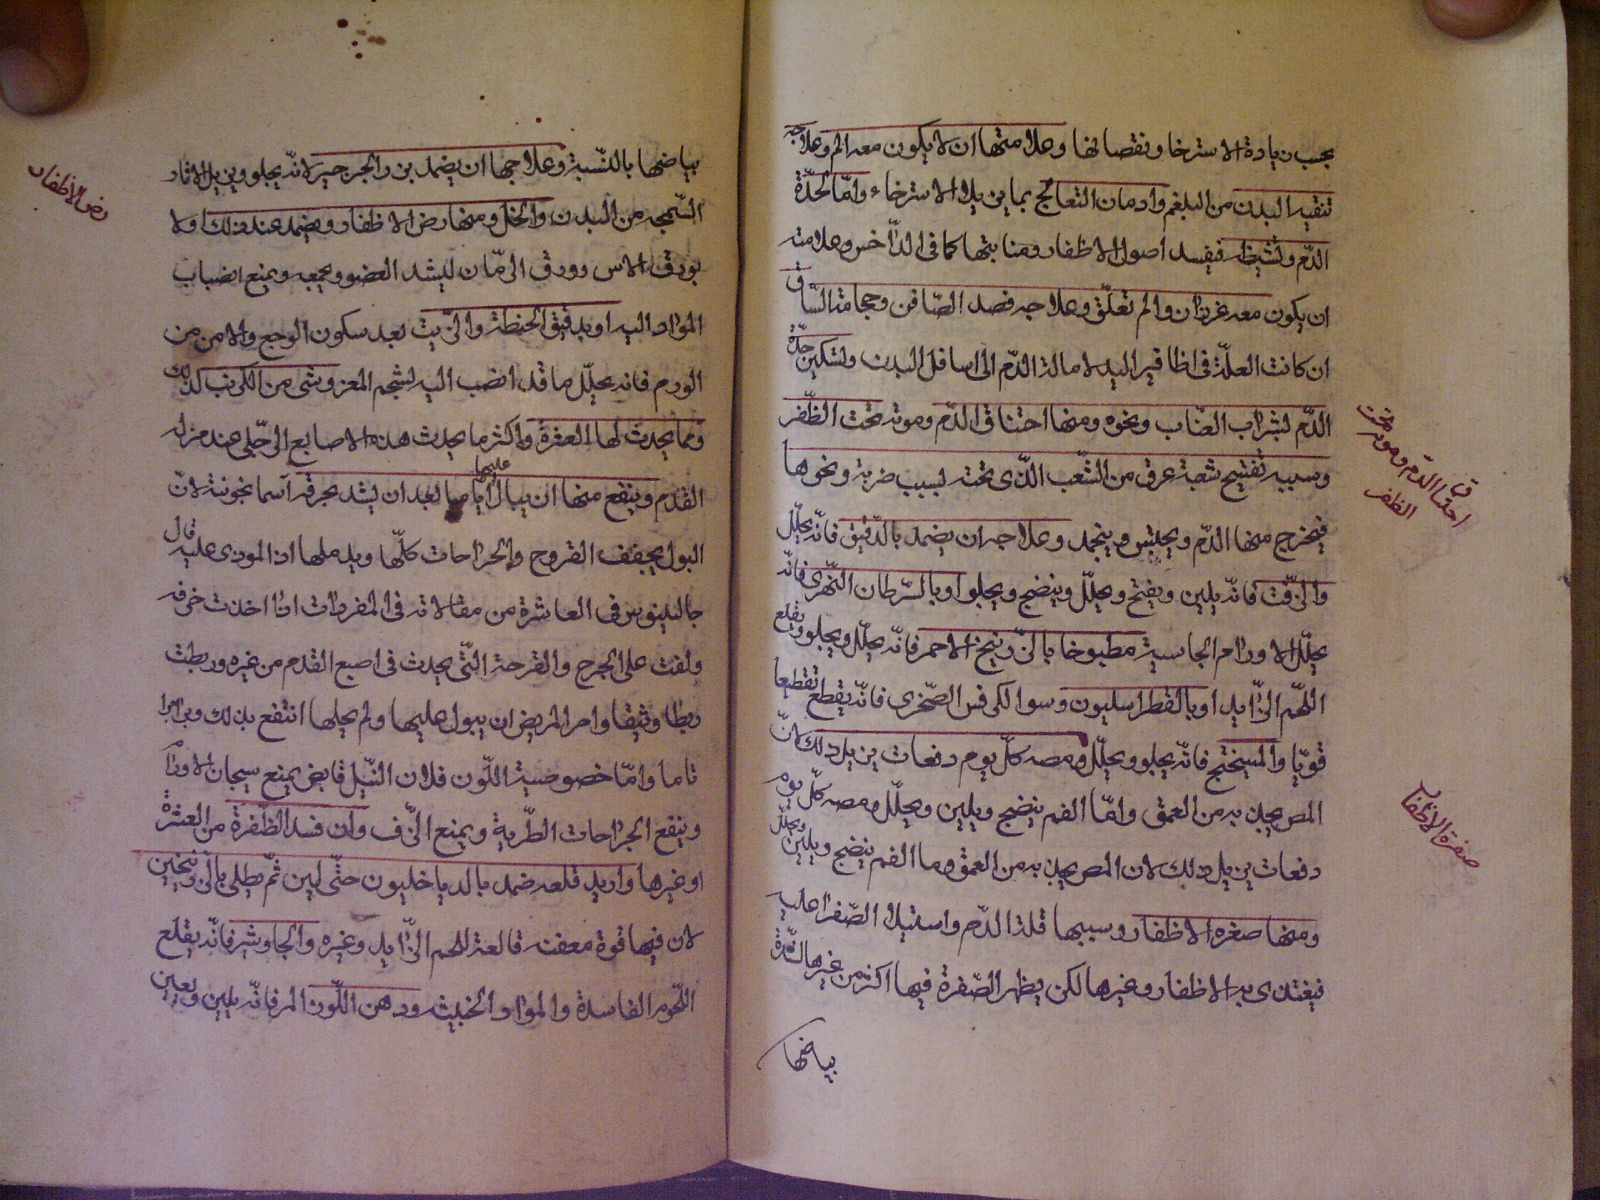 بحسب زيادة الاسترخا ونقصانها وعلامتها ان لا يكون معه الم وعلاجه
تنقية البدن من البلغم وادمان التعالج بما يزيل الاسترخاء وامّا لحدّة
الدّم وتشيطه فيفسد اصول الاظفار ومنابتها كما فى الدّاخس وعلامته
ان يكون معه غرزان والم تعلّق وعلاجه فصد الصّافن وحجامة السّاق
ان كانت العلّة فى اظافير اليد لامالة الدّم الى اسافل البدن وتسكين حدّة
الدّم بشراب العنّاب ونحوه ومنها احتناق الدّم وموته تحت الظّفر
وسببه تفتيح شعبة عرق من الشّعب الّذى تحته بسبب ضربة ونحوها
فيخرج منها الدّم ويحتبس وينجمد وعلاجه ان يضمد بالدّقيق فانّه يحلّل
والزّفت فانّه يلين ويفتح ويحلّل وينضج ويجلو او بالسّرطان النّهرى فانّه
يحلّل الاورام الجاسية مطبوخا بالزّرنيخ الاحمر فانّه يحلّل ويجلو ويقلع
اللّحم الزّايد او بالفطراسليون وسوا الكرفس الصّخرى فانّه يقطع تقطيعا
قويّا والمسيختج فانّه يجلو ويحلّل ومصه كلّ يوم دفعات يزيل ذلك لانّ
المص يجذب من العمق وامّا الفم ينضج ويلين ويحلّل ومصه كلّ يوم
دفعات يزيل ذلك لان المص يجذب من العمق وما الفم ينضج ويلين ويحلّل
ومنها صفرة الاظفار وسببها قلة الدّم واستيلا الصّفرا عليه
فيغتذى به الاظفار وغيرها لكن يظهر الصّفرة فيها اكثر من غيرها لشدّة
بياضها
احتناق الدّم وموته تحت الظفر
صفرة الاظفار
بياضها بالنّسبة وعلاجها ان يضمد ببزر الجرجير لانّه يجلو ويزيل الاثار
السّمجه من البدن والخل ومنها رض الاظفار ويضمد عند ذلك اولا
بورق الاس وورق الرّمان ليشد العضو ويجمعه ويمنع انصباب
الموّاد اليه او بدقيق الحنطة والزّيت بعد سكون الوجع والامن من
الورم فانه يحلّل ما قد انصب اليه بشحم المعز وشى من الكبريت كذلك
ومما يحدث لها العثرة واكثر ما يحدث هذه الاصابع الرّجلى عند مزلة
القدم وينفع منها ان يبال عليها اياما بعد ان يشد بحرقة آسمانجونية لانّ
البول يجفف القروح والجراحات كلّها ويدملها اذا لمودى عليه قال
جالينوس فى العاشرة من مقالاته فى المفردات اذا اخذت خرقة
ولفت على الجرح والقرحة الّتى يحدث فى اصبع القدم من غيره وربطت
ربطا وثيقا وامر المريض ان يبول عليها ولم يحلها انتفع بذلك وبرا برا
تاما وامّا خصوصية اللّون فلان النّيل قابض يمنع سيحان الاورام
وينفع الجراحات الطّرية ويمنع النّزف وان فسد الظّفرة من العثرة
او غيرها واريد قلعه ضمد بالدياخليون حتّى لين ثمّ يطلى بالزّرنيخين
لان فيها قوة معفنه قالعة للحم الزّايد وغيره والجاوشير فانّه يقلع
اللّحوم الفاسدة والموّاد الخبيثه ودهن اللّوز المر فانّه يلين ويعين
رض الاظفار